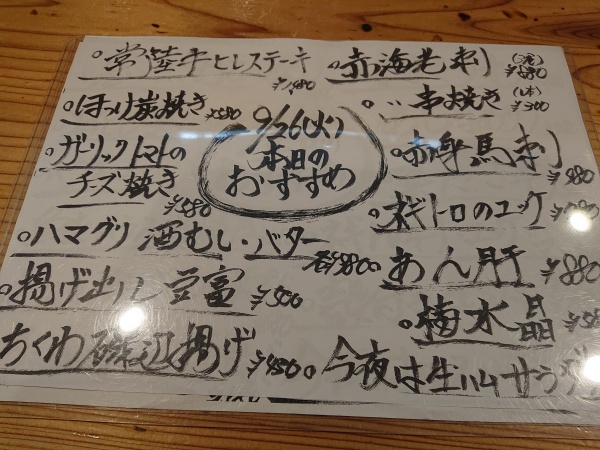 9/26(火)
本日の
おすすめ
常陸牛ヒレステーキ
ほっけ炭焼き ¥580
ガーリックトマトの
チーズ焼き ¥580
ハマグリ 酒むし・バター
各¥800
揚げ出し豆富 ¥500
ちくわ磯辺揚げ ¥450
赤海老刺
〃 串焼き (1本) ¥300
赤身馬刺 ¥980
ネギトロのユッケ
あん肝 ¥880
梅水晶
今夜は生ハムサラダ